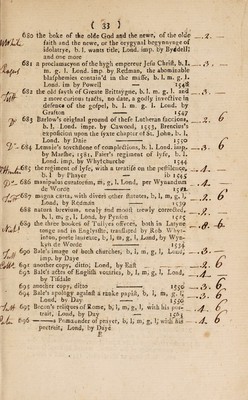 ( 33 )
680 the boke of the olde God and the newe, of the olde
faith and the newe, or the orygynal begynnynge of
idolatrye, b. l. wants title, Lond. imp. by Byddell:
and one more
681 a proclamacyon of the hygh emperor Jesu Christ, b. l.
m. g. l. Lond. imp. by Redman, the abominable
blasphemies contain'd in the masse, b. l. m. g. l.
Lond. im by Powell — 1548
682 the old fayth of Greate Brittaygne, b. l. m. g. l. and
2 more curious tracts, no date, a godly invective in
defence of the gospel, b. l. m. g. l. Lond. by
Grafton — 1547
683 Barlow's original ground of these Lutheran faccions,
b. l. Lond. imp. by Cawood, 1553, Brencius's
exposition upon the syxte chapter of St. John, b. l.
Lond. by Daie — 1550
684 Lemnie's touchstone of complexions, b. l. Lond. imp.
by Marshe, 1581, Faire's regiment of lyfe, b. l.
Lond. imp. by Whytchurche — 1544
685 the regiment of lyfe, with a treatise on the pestilence,
b. l. by Phayer — 1565
686 manipulus curatorum, m, g, l, Lond, per Wynandum
de Worde — 1502
687 magna carta, with divers other statutes, b, l, m, g, l,
Lond, by Redman — 1539
688 natura brevium, newly and moost trewly corrected,
b, l, m, g, l, Lond, by Pynson
689 the three bookes of Tullyes offices, both in Latyne
tonge and in Englysshe, translated by Rob. Whyt-
inton, poete laureate, b, l, m, g, l, Lond, by Wyn-
kyn de Worde — 1534
690 Bale's image of both churches, b, l, m, g, l, Lond,
imp, by Daye
691 another copy, ditto; Lond, by East
692 Bale's actes of English votaries, b, l, m, g, l, Lond,
by Tisdale
693 another copy, ditto — 1550
694 Bale's apology against a ranke papist, b, l, m, g, l,
Lond, by Day — 1550
695 Becon's reliques of Rome, b, l, m, g, l, with his por-
trait, Lond, by Day — 1563
696 — Pomaunder of prayer, b, l, m, g, l, with his
portrait, Lond, by Daye
E